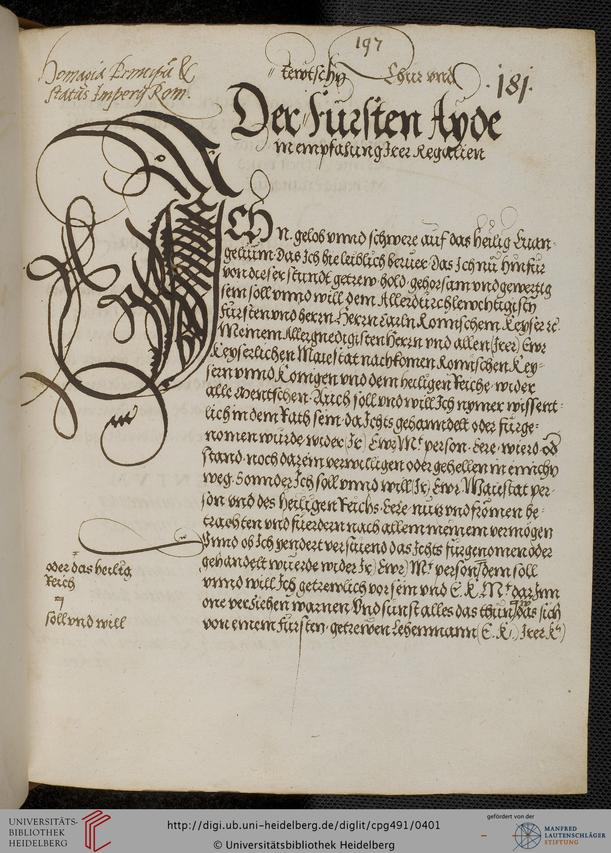 197
Homagia Principũ &
Statuũ Imperij Rom.
teutscher Chur vnd
181.
Der Fursten Ayde
in empfahung Irer Regalien
ICH N. gelob vnnd schwere auf das heilig Euan-
gelium. Das Ich hie leiblich beruer. Das Ich nu hinfur
von dieser stundt getrew. hold. gehorsam vnd gewertig
sein soll vnnd will. dem Allerdurchlewchtigistn
Fursten vnd herrn. Herrn Carln Romischem Keyser ꝛc
Meinem Allergnedigisten Herrn vnd allen (Irer) Ewr
Keyserlichen Maiestat nachkomen Romischen Key-
sern vnnd Konigen vnd dem heiligen Reiche. wider
alle Mentschen. Auch soll vnd will Ich nymer wissent-
lich in dem Rath sein. da Ichts gehanndelt oder furge-
nomen wurde wider (Ir) Ewr Mt. person. Ere. wird od
stand. noch darein verwilligen oder gehellen in einichn
weg. Sonnder Ich soll vnnd will (Ir) Ewr Maiestat per-
son vnd des heiligen Reichs. Ere. nutz vnd fromen be-
trachten vnd fuerdern nach allem meinem vermögen
Vnnd ob Ich yendert verstuend das Ichts furgenomen oder
gehandelt wuerde wider (Ir) Ewr) Mt. person dem soll
vnnd will Ich getrewlich vorsein vnd E. K. Mt. dar Inn
one verziehen warnen. Vnd sunst alles das thun das sich
von einem Fursten. getrewen Lehenmann (E. K.) Irer K.)
oder das heilig
Reich
soll vnd will
UNIVERSITÄTS-
BIBLIOTHEK
HEIDELBERG
http://digi.ub.uni-heidelberg.de/diglit/cpg491/0401
© Universitätsbibliothek Heidelberg
gefördert von der
MANFRED
LAUTENSCHLÄGER
STIFTUNG